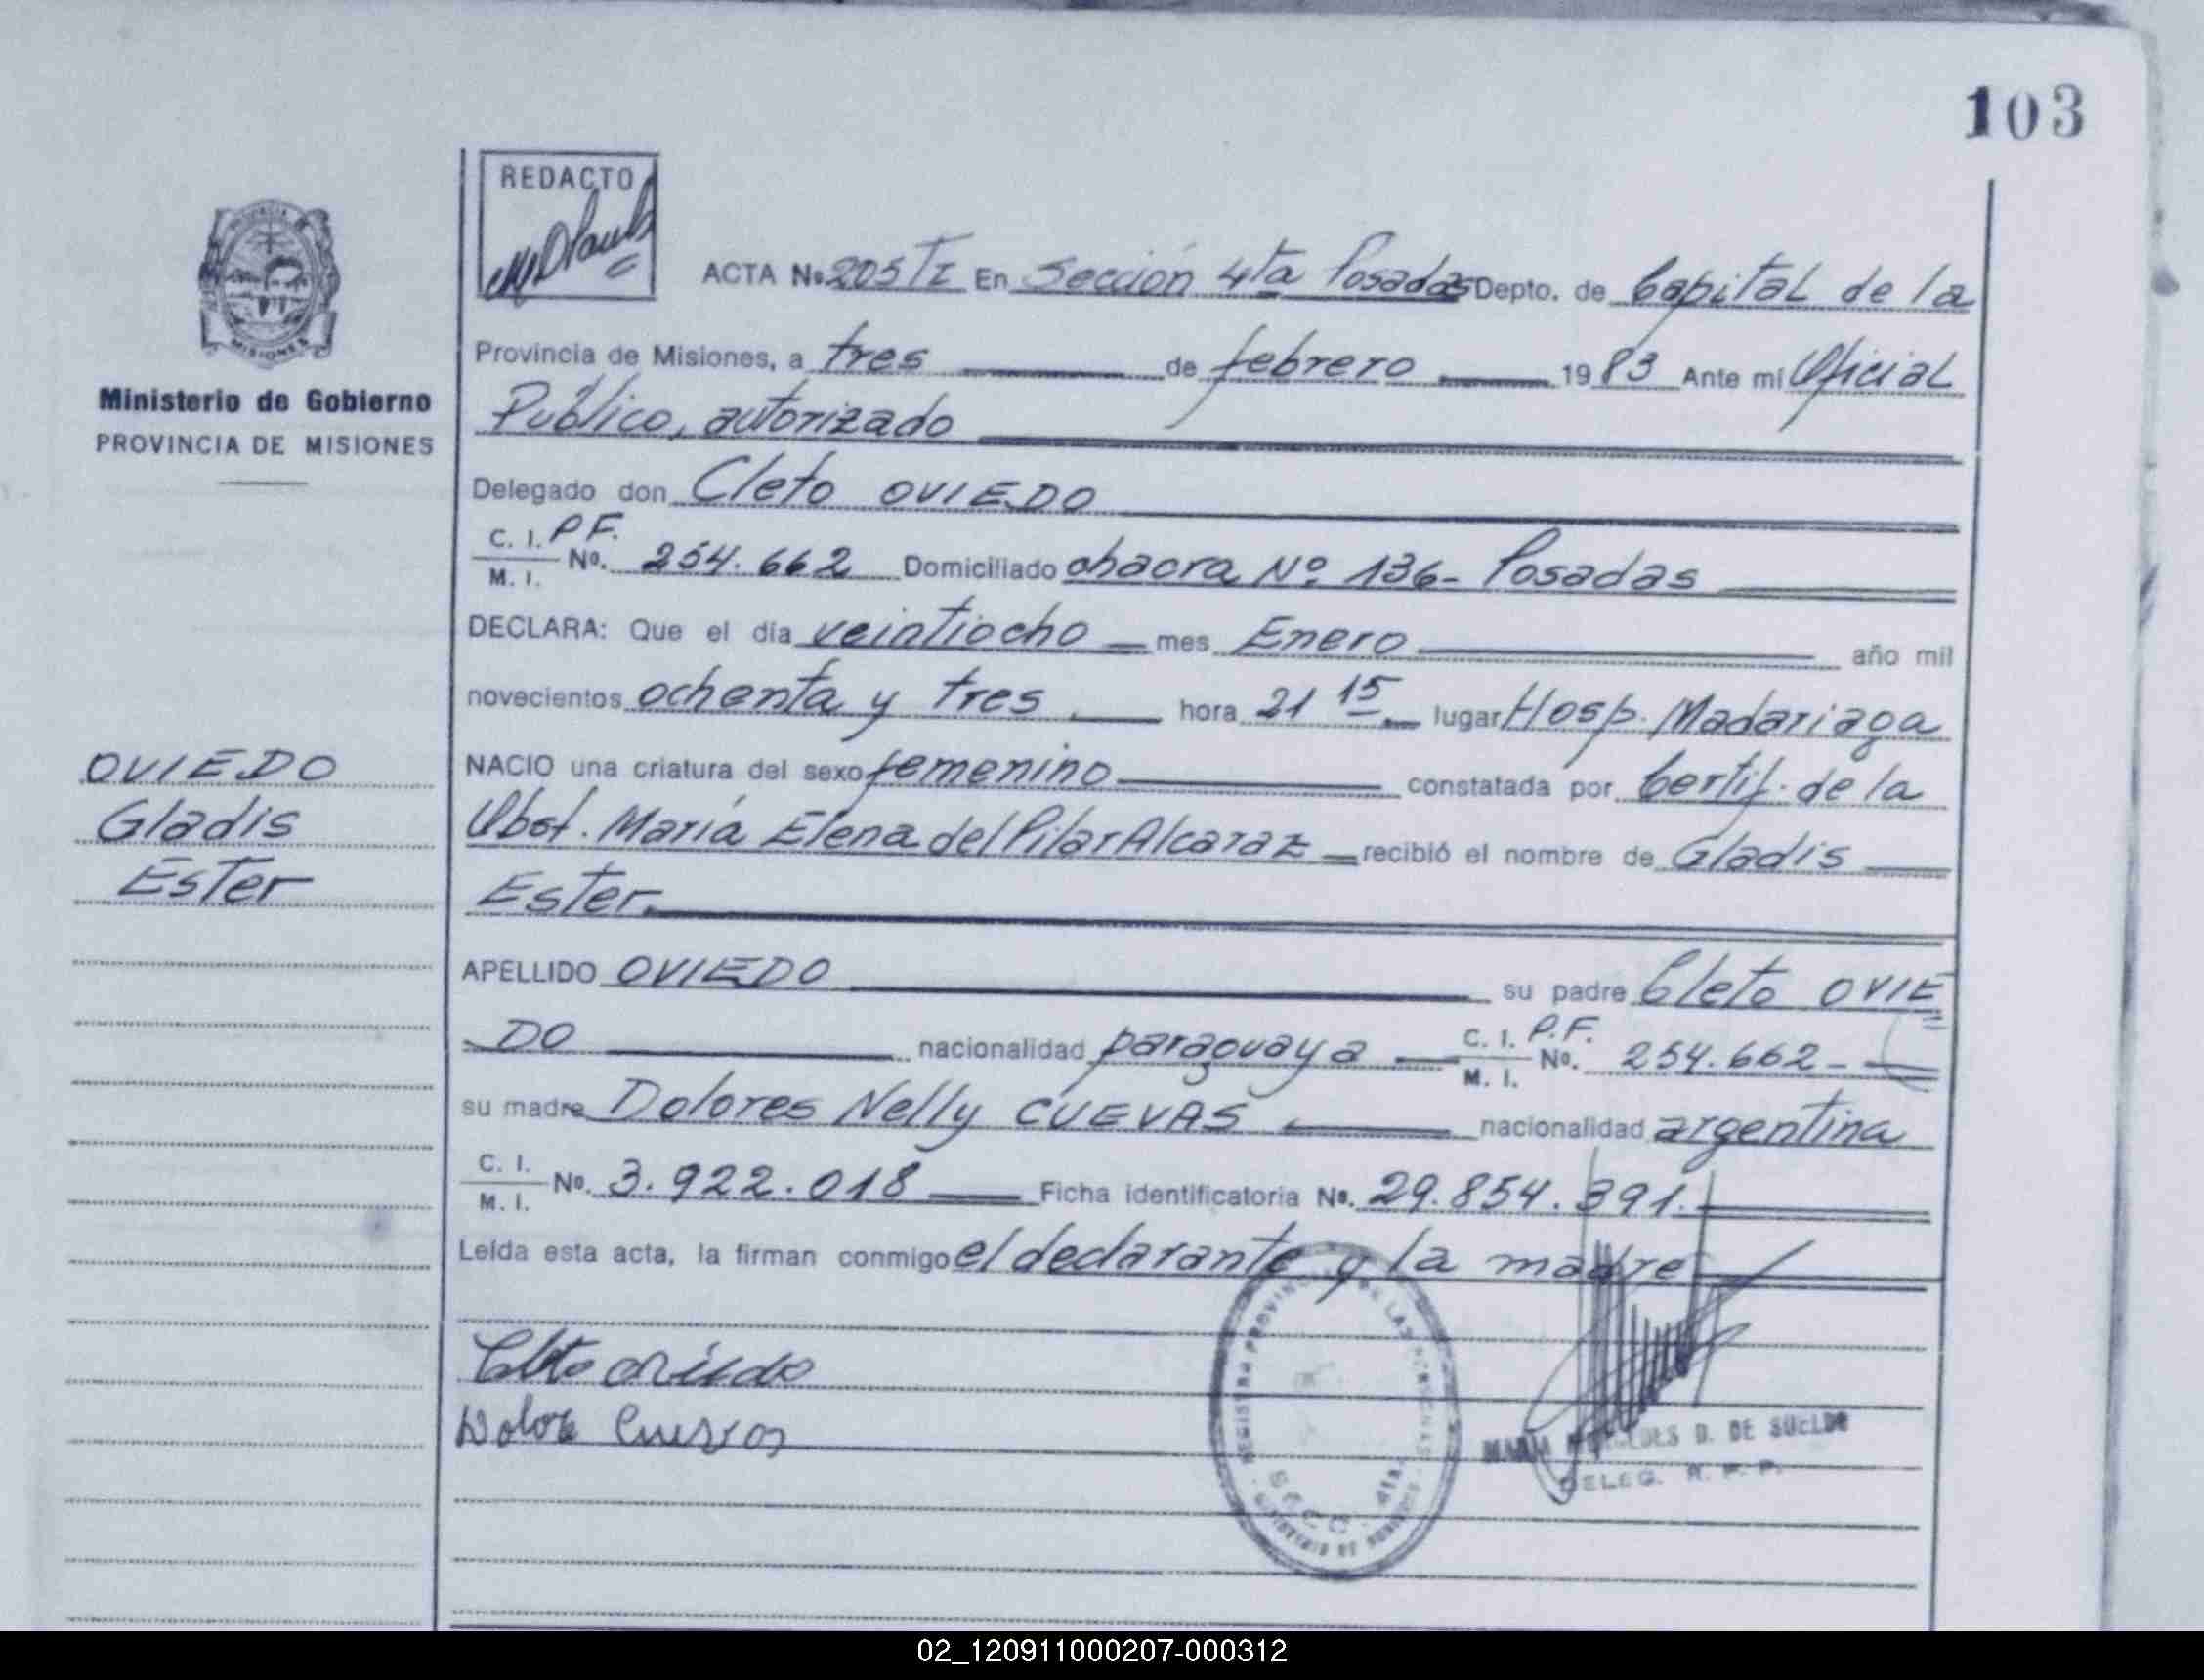 103
REDACTO
ACTA No 205 TI En Sección 4ta Posadas Depto. de Capital de la
Provincia de Misiones, a tres de febrero 1983 Ante mí Oficial
Público, autorizado
Ministerio de Gobierno
PROVINCIA DE MISIONES
MISIONES
Delegado don Cleto OVIEDO
C. I. P.F.
M. I. No. 254.662 Domiciliado chacra Nº 136- Posadas
DECLARA: Que el día veintiocho mes Enero año mil
novecientos ochenta y tres hora 21 15 lugar Hosp. Madariaga
OVIEDO
Gladis
Ester
NACIO una criatura del sexo femenino constatada por Certif. de la
Obst. María Elena del Pilar Alcaraz recibió el nombre de Gladis
Ester.
APELLIDO OVIEDO su padre Cleto OVIE
DO nacionalidad paraguaya C. I. P.F. M. I. No. 254.662-
su madre Dolores Nelly CUEVAS nacionalidad argentina
C. I. M. I. No. 3.922.018 Ficha identificatoria No. 29.854.391.
Leída esta acta, la firman conmigo el declarante y la madre
Cleto Oviedo
Dolore Cuevas
REGISTRO PROVINCIAL DE LAS PERSONAS
SECC. 4ta.
MINISTERIO DE GOBIERNO
MARIA D. DE SUELDO
DELEG. R. P. P.
02_120911000207-000312